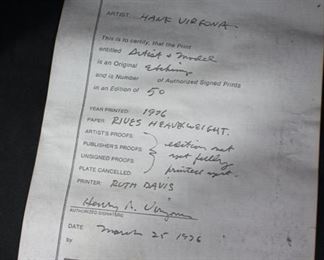 ARTIST: HANK VIRGONA.
This is to certify, that the Print
entitled Artist & Model
is an Original Etching
and is Number of Authorized Signed Prints
in an Edition of 50
YEAR PRINTED: 1976
PAPER: RIVES HEAVEWEIGHT.
ARTIST'S PROOFS:
PUBLISHER'S PROOFS: edition not
UNSIGNED PROOFS: yet fully
PLATE CANCELLED: printed yet.
PRINTER: RUTH DAVIS
Henry R. Virgona
AUTHORIZED SIGNATURE
DATE March 25 1976
by